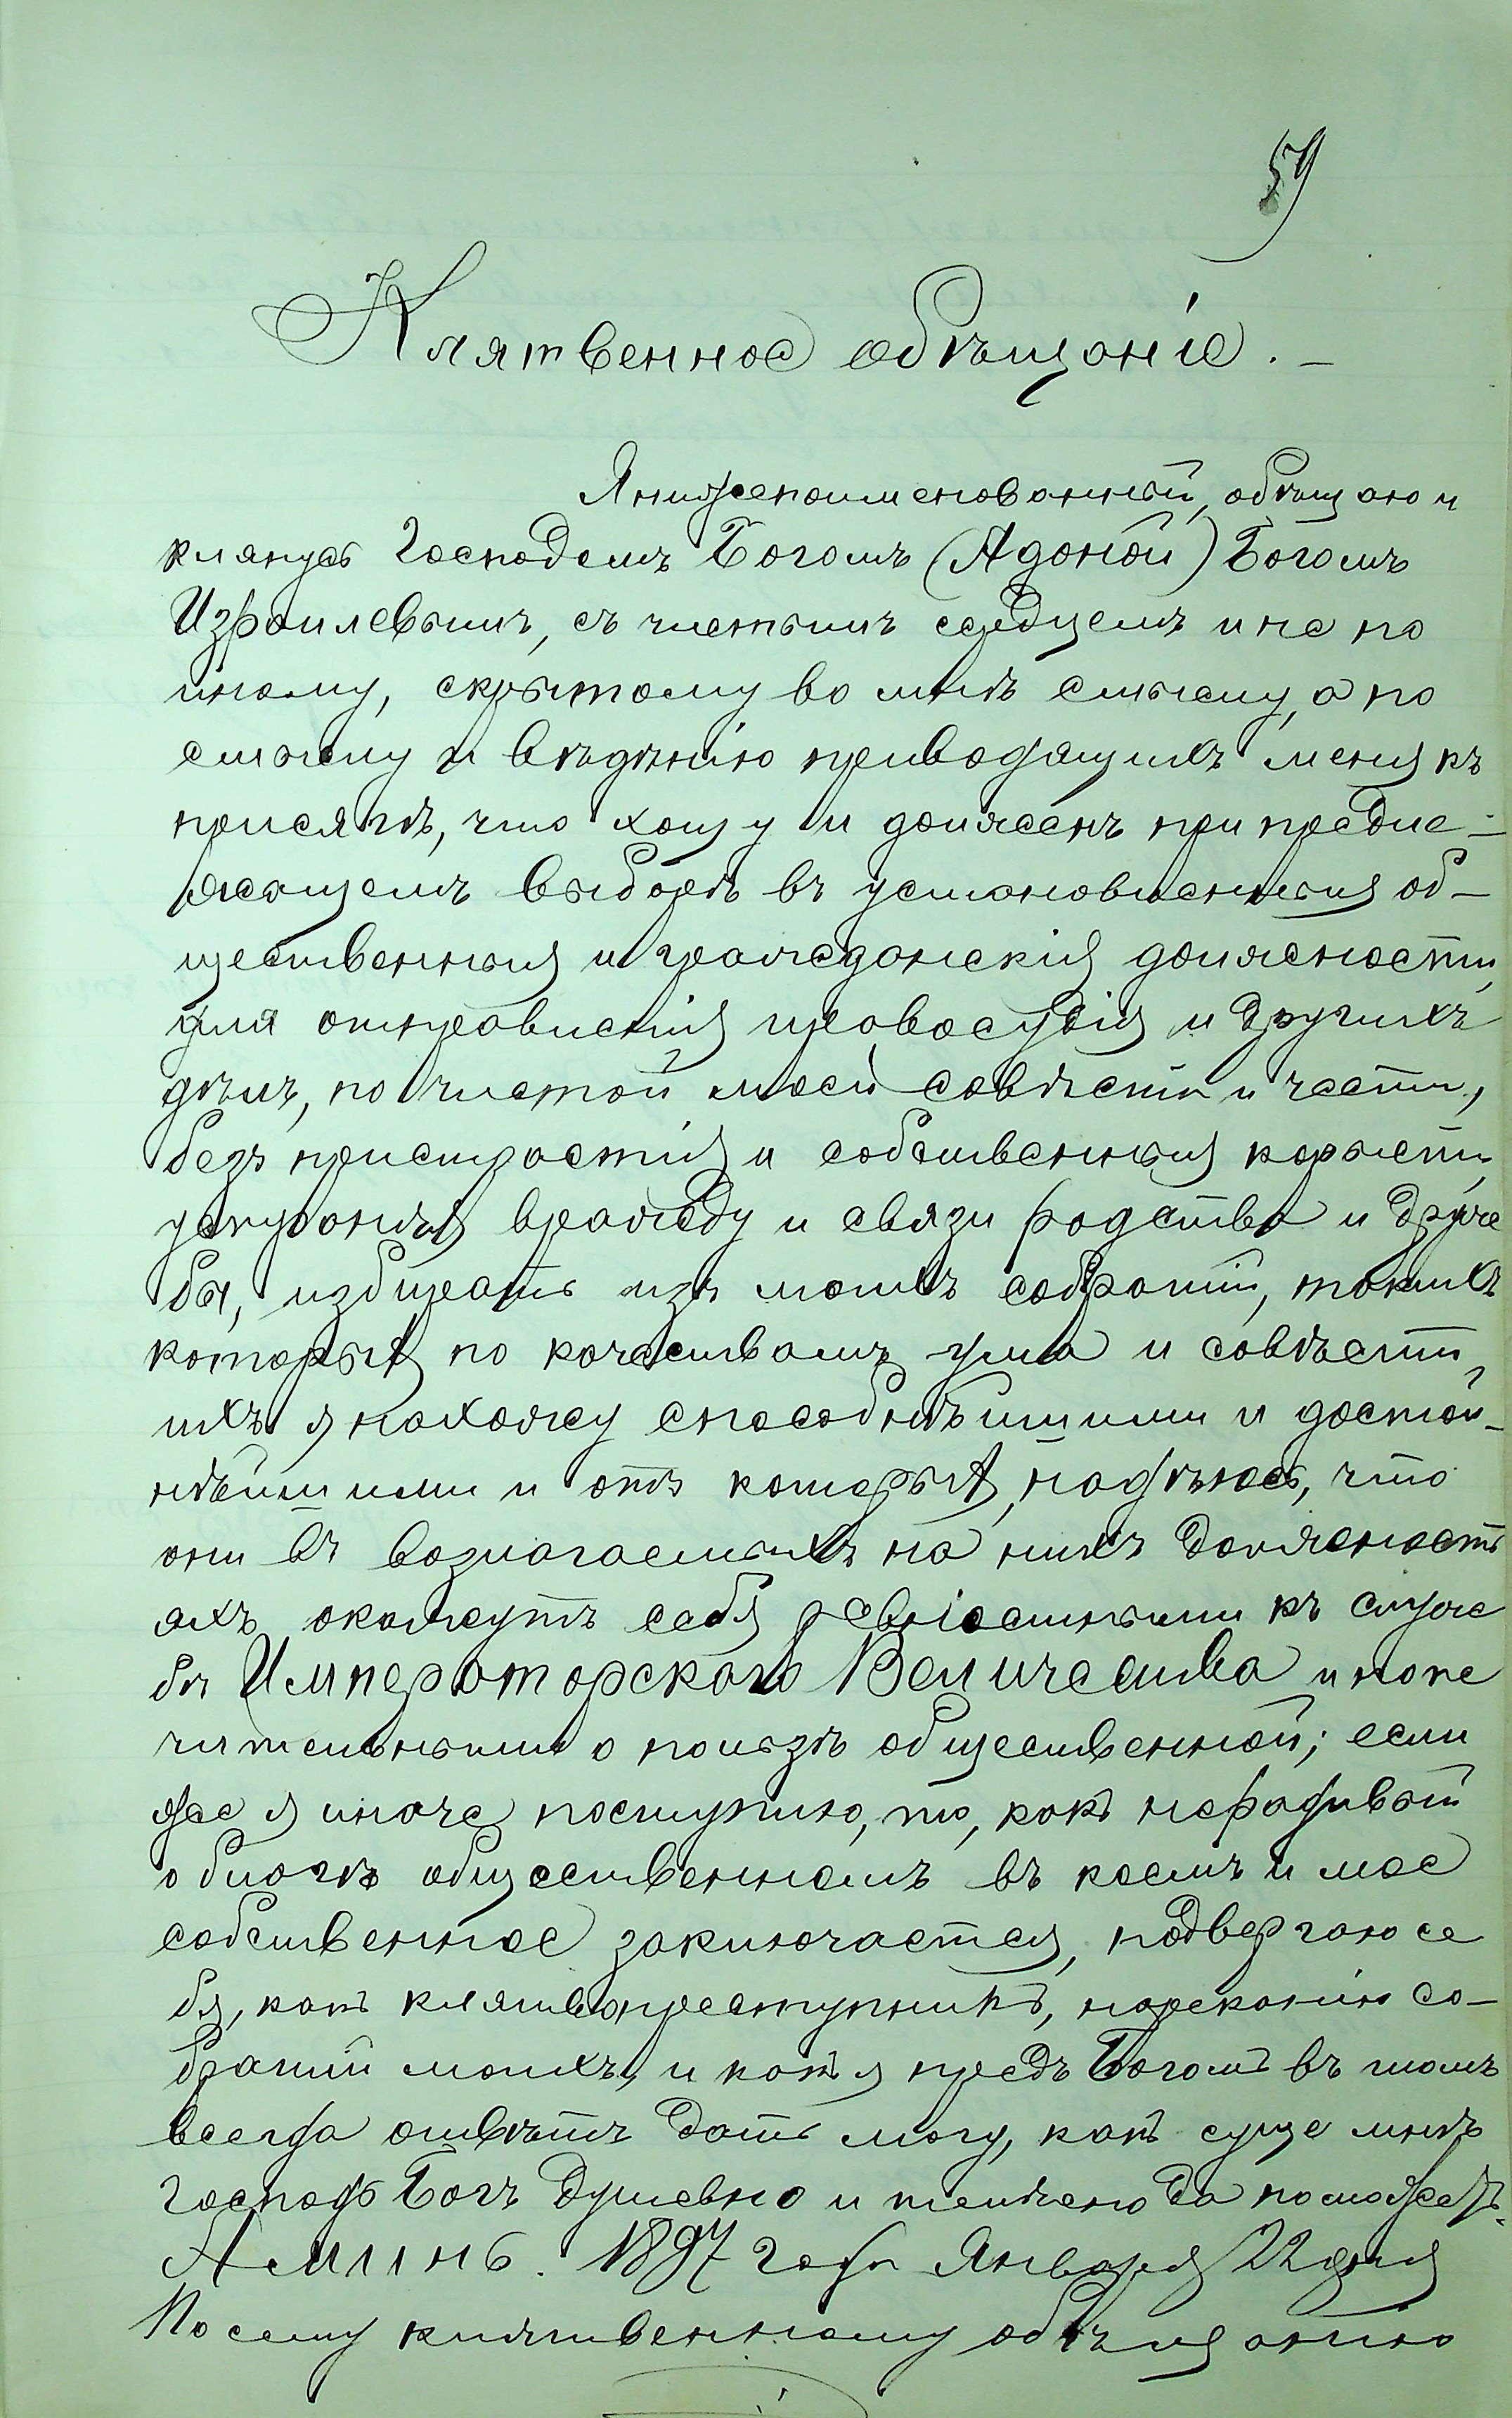 59
Клятвенное обѣщаніе. —
Я нижепоименованный, обѣщаю и
клянусь Господемъ Богомъ (Адонай) Богомъ
Израилевымъ, съ чистымъ сердцемъ и не по
иному, скрытому во мнѣ смыслу, а по
смыслу и вѣдѣнію приводящихъ меня къ
присягѣ, что хощу и долженъ при предле-
жащемъ выборѣ въ установленныя об-
щественныя и гражданскія должности,
для отправленія правосудія и другихъ
дѣлъ, по чистой моей совѣсти и чести,
безъ пристрастія и собственныя корысти,
устраняя вражду и связи родства и друж
бы, избирать изъ моихъ собратій, такихъ
которыя по качествамъ ума и совѣсти
ихъ я нахожу способнѣйшими и достой-
нѣйшими и отъ которыя, надѣюсь, что
они въ возлагаемыхъ на нихъ должност
яхъ окажутъ себя ревностными къ служ
бѣ Императорскаго Величества и попе
чительными о пользѣ общественной; если
же я иначе поступлю, то, какъ нерадивый
о благѣ общественномъ въ коемъ и мое
собственное заключается, подвергаю се
бя, какъ клятвопреступникъ, нареканію со-
братій моихъ, и какъ я предъ Богомъ въ томъ
всегда отвѣтъ дать могу, какъ суще мнѣ
Господь Богъ душевно и тѣлесно да поможетъ.
Аминь. 1897 года Января 22 дня
По сему клятвенному обѣщанію